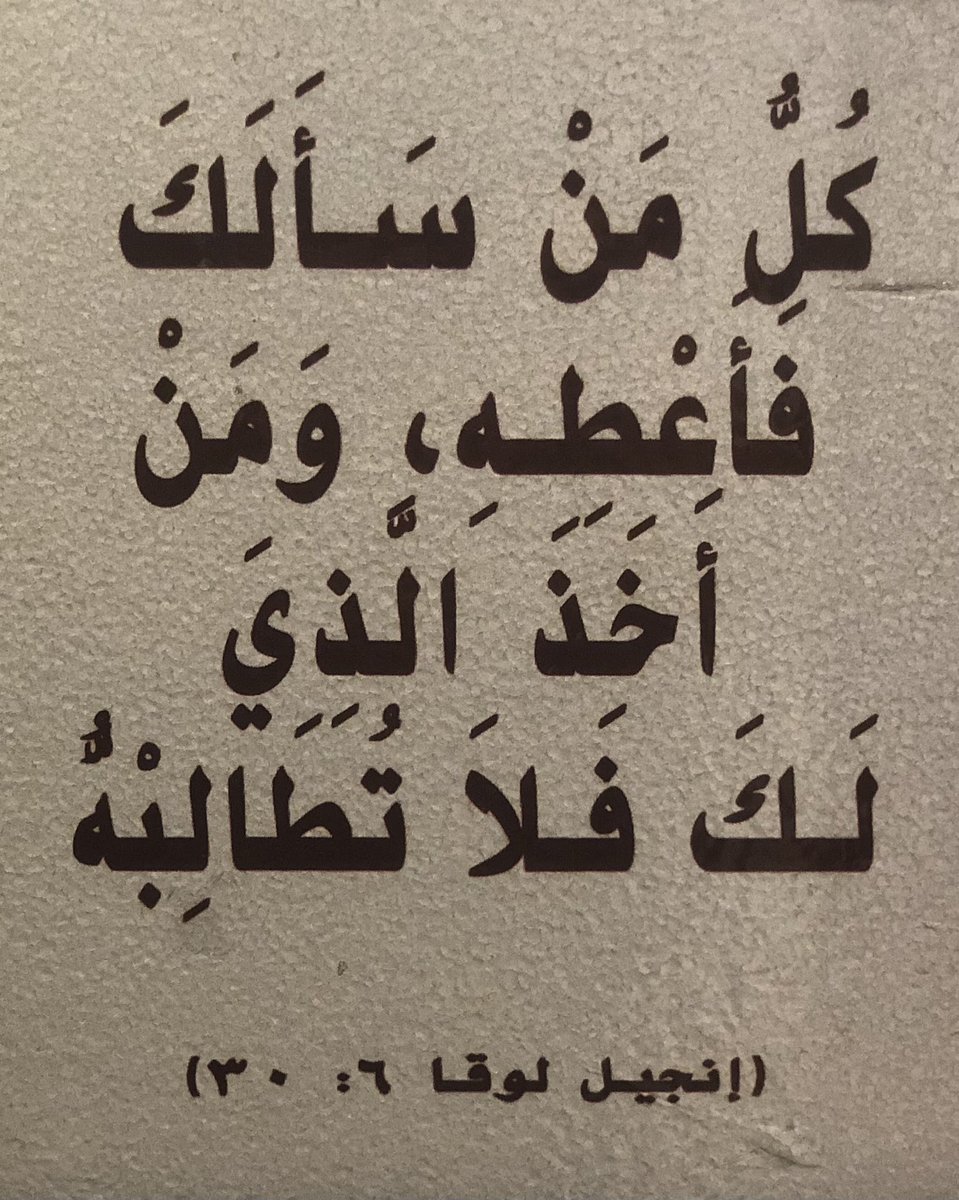 كُلُِّ مَنْ سَأَلَكَ
فَأَعْطِهِ، وَمَنْ
أَخَذَ الَّذِي
لَكَ فَلاَ تُطَالِبْهُ
(إنجيل لوقا ٦: ٣٠)